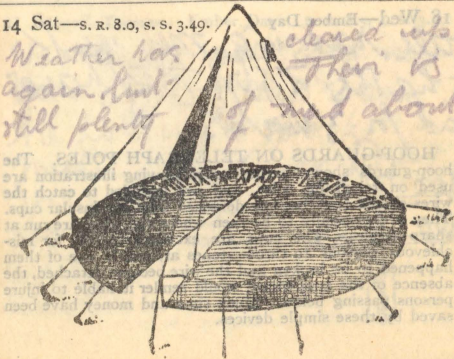 14 Sat—S. R. 8.0, S. S. 3.49.
Weather has cleared up
again but Their is
still plenty of mud about